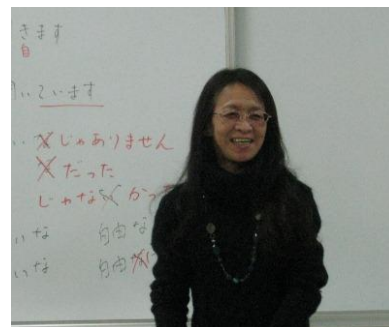 きます
自
います
じゃありません
だった
じゃなくかっ
いな 自由な
いな 自由